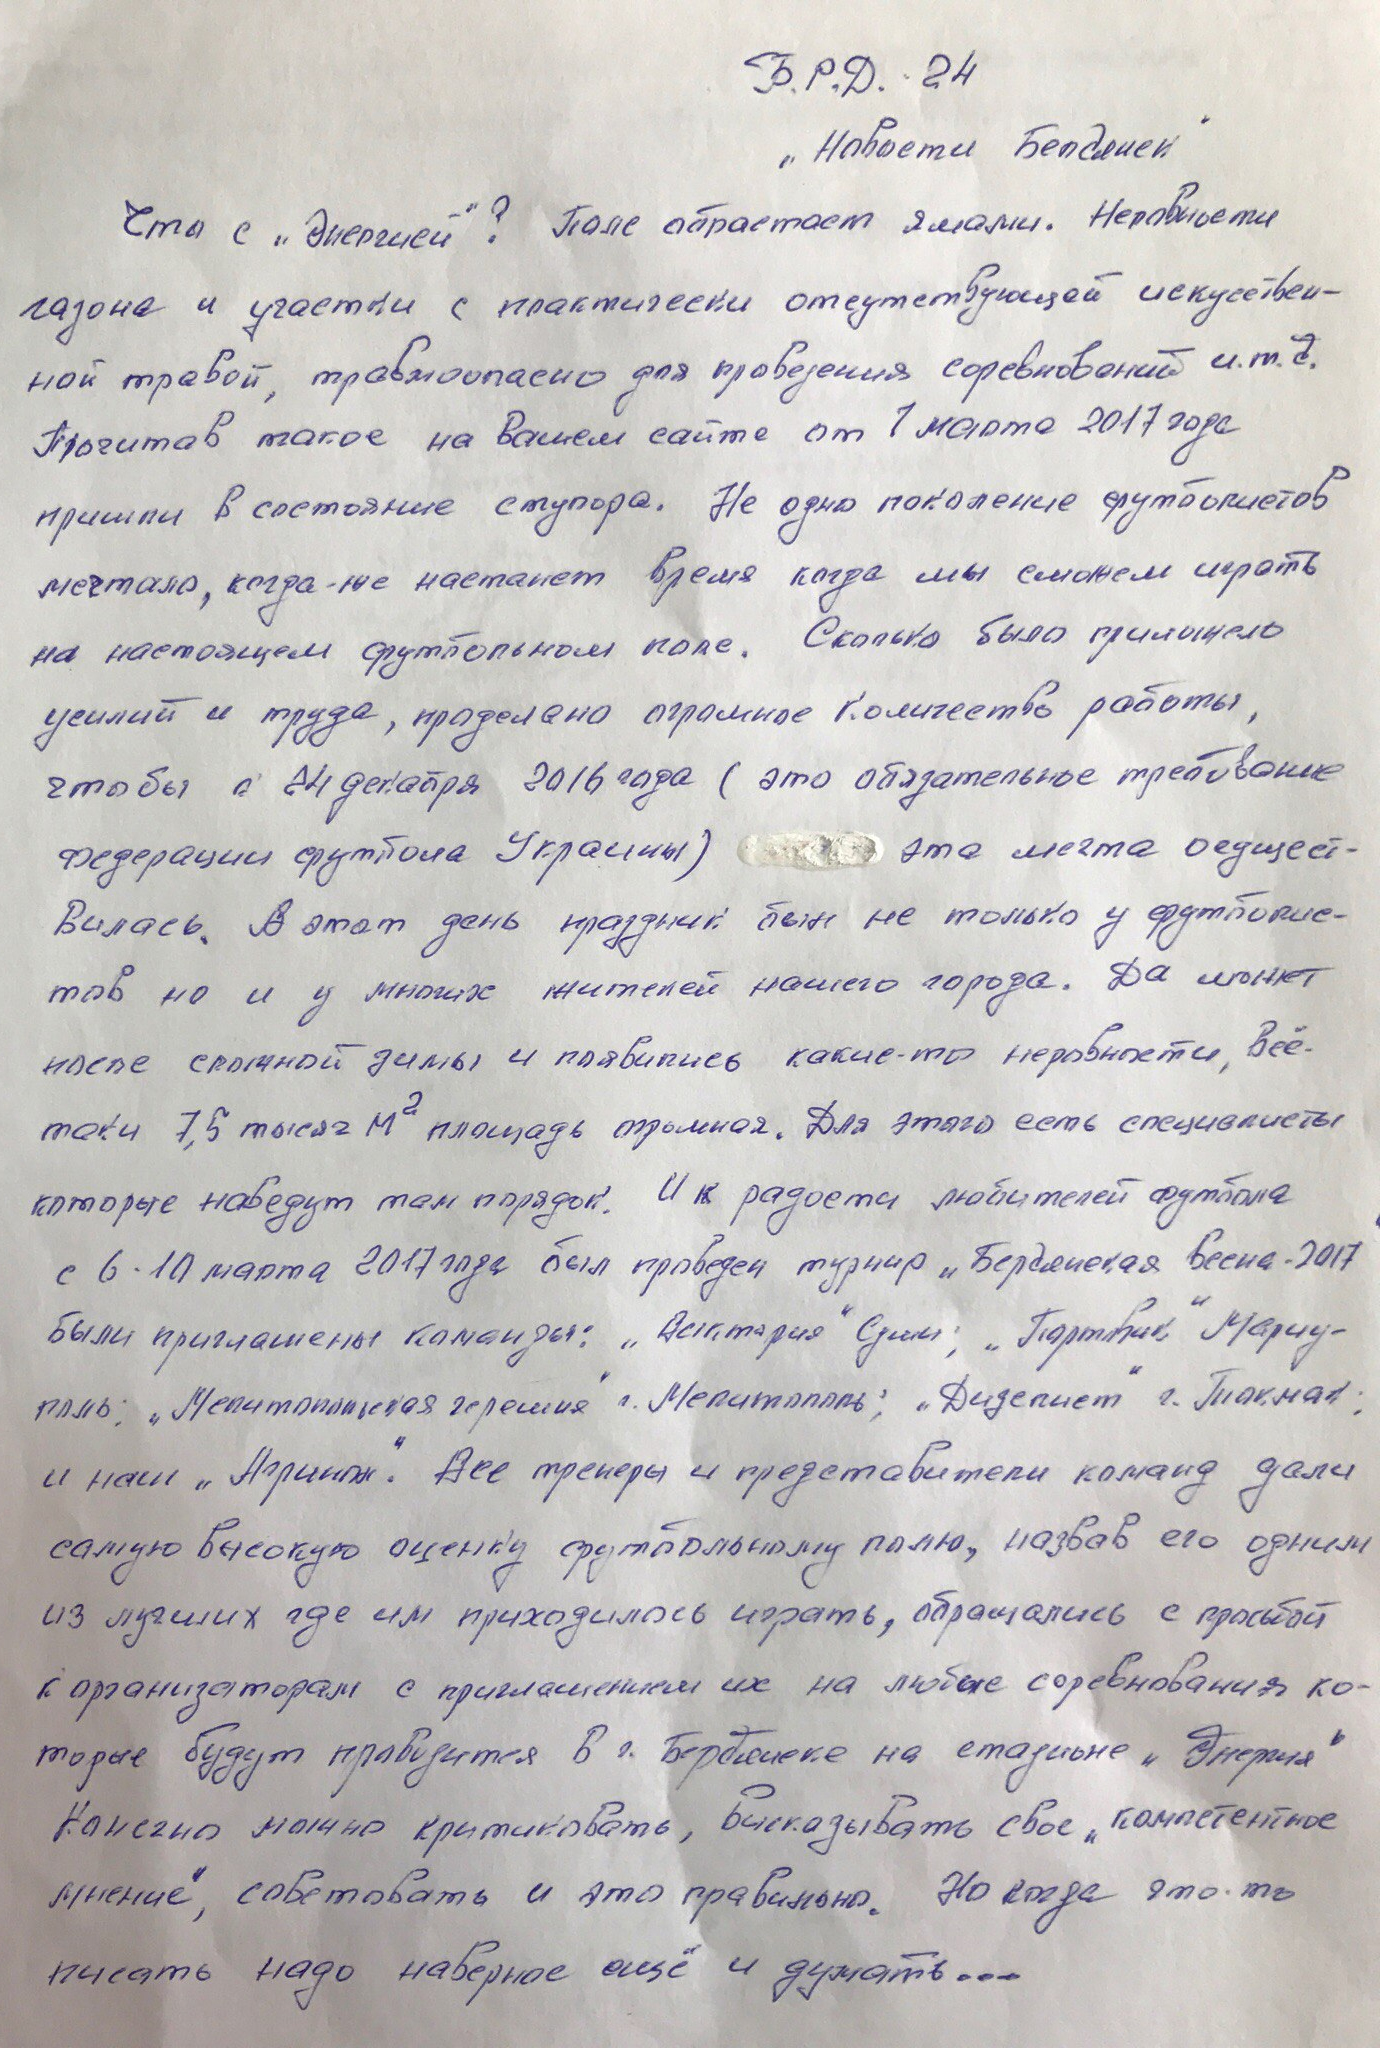 Б.Р.Д. 24
„Новости Бердянск"
Что с „Энергией"? Поле обрастает ямами. Неровности
газона и участки с практически отсутствующей искусствен-
ной травой, травмоопасно для проведения соревнований и.т.д.
Прочитав такое на вашем сайте от 7 марта 2017 года
пришли в состояние ступора. Не одно поколение футболистов
мечтало, когда-же настанет время когда мы сможем играть
на настоящем футбольном поле. Сколько было приложено
усилий и труда, проделано огромное количество работы,
чтобы с 24 декабря 2016 года ( это обязательное требование
федерации футбола Украины) эта мечта осущест-
вилась. В этот день праздник был не только у футболис-
тов но и у многих жителей нашего города. Да может
после сложной зимы и появились какие-то неровности, всё-
таки 7,5 тысяч м² площадь огромная. Для этого есть специалисты
которые наведут там порядок. И к радости любителей футбола
с 6-10 марта 2017 года был проведен турнир „Бердянская весна-2017
были приглашены команды: „Виктория" Сумы; „Портовик" Мариу-
поль; „Мелитопольская черешня" г. Мелитополь; „Дизелист" г. Токмак;
и наш „Агринол". Все тренеры и представители команд дали
самую высокую оценку футбольному полю, назвав его одним
из лучших где им приходилось играть, обращались с просьбой
к организаторам с приглашением их на любые соревнования ко-
торые будут проводится в г. Бердянске на стадионе „Энергия"
Конечно можно критиковать, высказывать свое „компетентное
мнение", советовать и это правильно. Но когда что-то
писать надо наверное ещё и думать...